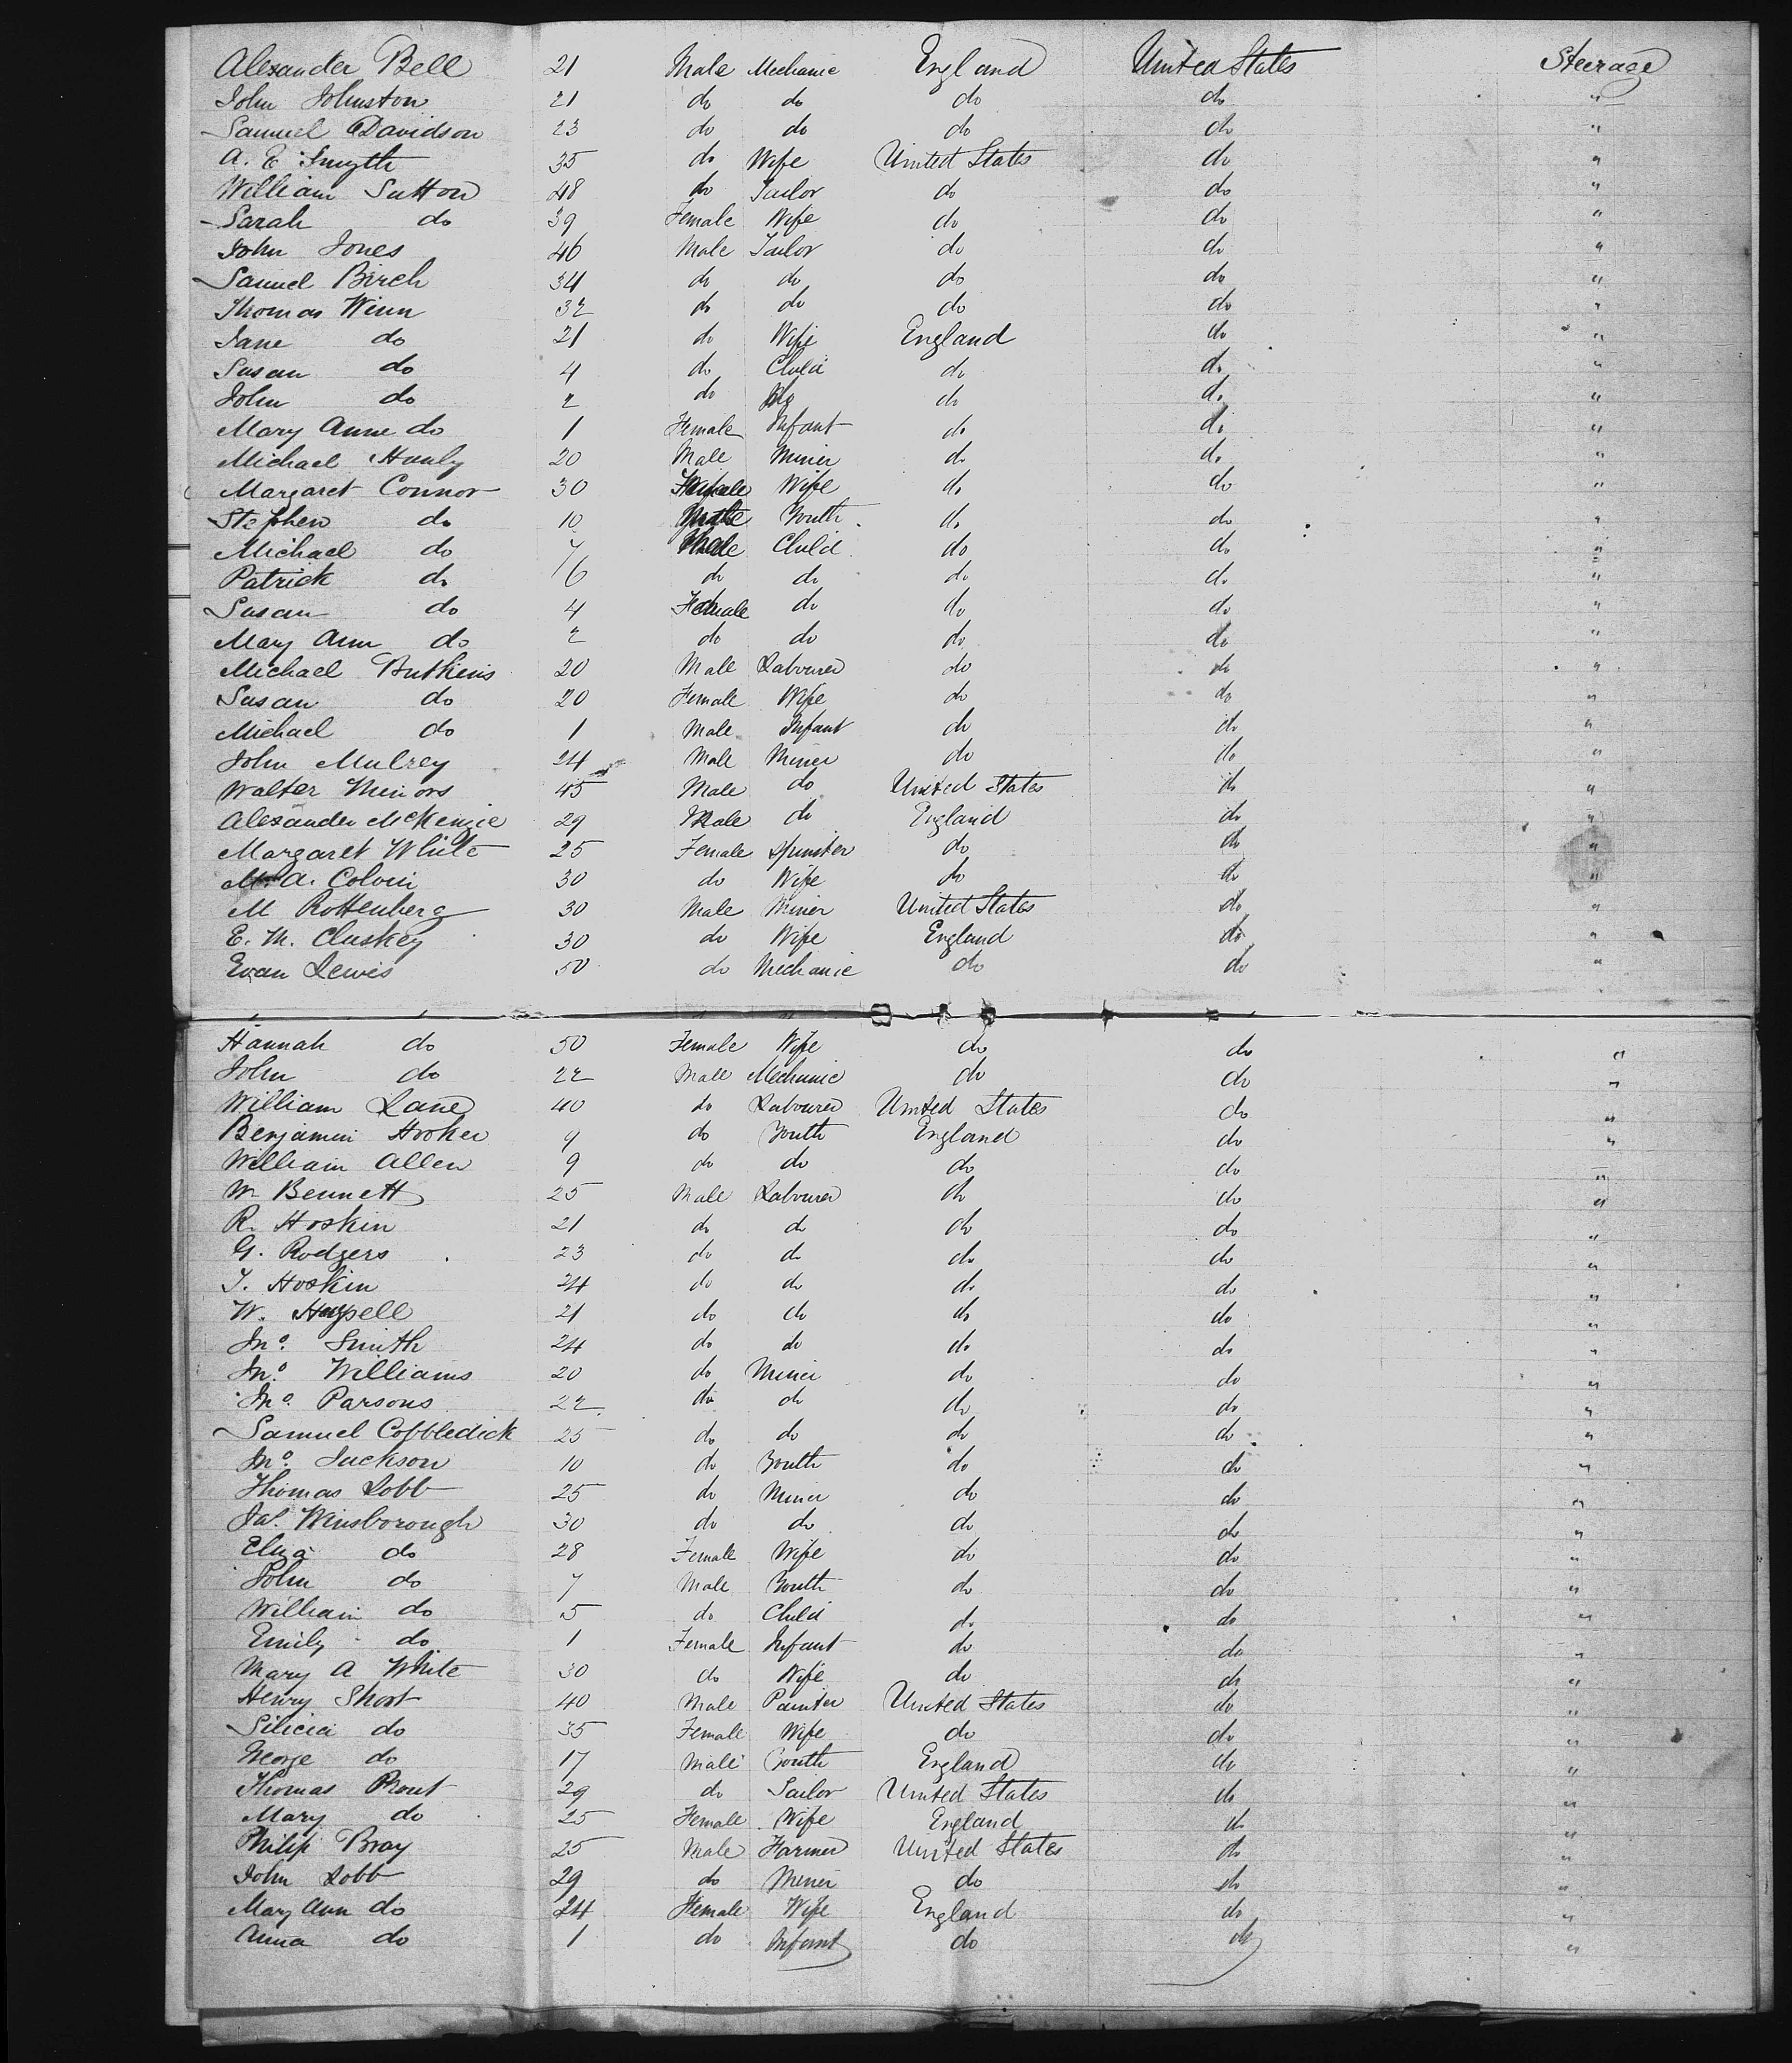 Alexander Bell 21 Male Mechanic England United States Steerage
John Johnston 21 do do do do "
Samuel Davidson 23 do do do do "
A. E Smyth 35 do Wife United States do "
William Sutton 48 do Tailor do do "
Sarah do 39 Female Wife do do "
John Jones 46 Male Tailor do do "
Samuel Birch 34 do do do do "
Thomas Winn 32 do do do do "
Jane do 21 do Wife England do "
Susan do 4 do Child do do "
John do 2 do do do "
Mary Anne do 1 Female Infant do do "
Michael Hanly 20 Male Miner do do "
Margaret Connor 30 Female Wife do do "
Stephen do 10 Male Youth do do "
Michael do 7 Male Child do do "
Patrick do 6 do do do do "
Susan do 4 Female do do do "
Mary Ann do 2 do do do do "
Michael 20 Male Labourer do do "
Susan do 20 Female Wife do do "
Michael do 1 Male Infant do do "
John Mulrey 24 Male Miner do do "
Walter Minors 45 Male do United States do "
Alexander McKenzie 29 Male do England do "
Margaret White 25 Female Spinster do do "
A. Colvin 30 do Wife do do "
M Rottenberg 30 Male Miner United States do "
E. M. Cluskey 30 do Wife England do "
Evan Lewis 50 do Mechanic do do "
Hannah do 50 Female Wife do do "
John do 22 Male Mechanic do do "
William Lane 40 do Labourer United States do "
Benjamin Hooker 9 do Youth England do "
William Allen 9 do do do do "
W Bennett 25 Male Labourer do do "
R. Hoskin 21 do do do do "
G. Rodgers 23 do do do do "
T. Hoskin 24 do do do do "
W. 21 do do do do "
Jno. Smith 24 do do do do "
Jno. Williams 20 do Miner do do "
Jno. Parsons 22 do do do do "
Samuel Cobbledick 25 do do do do "
Jno. Jackson 10 do Youth do do "
Thomas Lobb 25 do Miner do do "
Jas. Winsborough 30 do do do do "
Eliza do 28 Female Wife do do "
John do 7 Male Youth do do "
William do 5 do Child do do "
Emily do 1 Female Infant do do "
Mary A White 30 do Wife do do "
Henry Short 40 Male Painter United States do "
Silicia do 35 Female Wife do do "
George do 17 Male Youth England do "
Thomas Prout 29 do Sailor United States do "
Mary do 25 Female Wife England do "
Philip Bray 25 Male Farmer United States do "
John Lobb 29 do Miner do do "
Mary Ann do 24 Female Wife England do "
Anna do 1 do Infant do do "